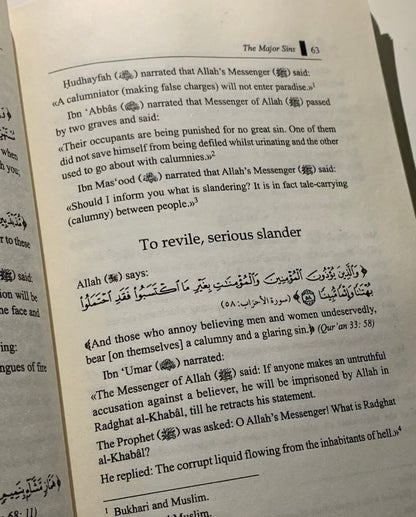 The Major Sins 63
Ḥudhayfah (ﷺ) narrated that Allah's Messenger (ﷺ) said:
«A calumniator (making false charges) will not enter paradise.»¹
Ibn 'Abbâs (ﷺ) narrated that Messenger of Allah (ﷺ) passed
by two graves and said:
«Their occupants are being punished for no great sin. One of them
did not save himself from being defiled whilst urinating and the other
used to go about with calumnies.»²
Ibn Mas'ood () narrated that Allah's Messenger (ﷺ) said:
«Should I inform you what is slandering? It is in fact tale-carrying
(calumny) between people.»³
To revile, serious slander
Allah () says:
﴿ وَالَّذِينَ يُؤْذُونَ الْمُؤْمِنِينَ وَالْمُؤْمِنَٰتِ بِغَيْرِ مَا اكْتَسَبُوا فَقَدِ احْتَمَلُوا
بُهْتَٰنًا وَإِثْمًا مُّبِينًا ﴾ (سورة الأحزاب: ٥٨)
﴾And those who annoy believing men and women undeservedly,
bear [on themselves] a calumny and a glaring sin.﴿ (Qur'an 33: 58)
Ibn 'Umar () narrated:
«The Messenger of Allah (ﷺ) said: If anyone makes an untruthful
accusation against a believer, he will be imprisoned by Allah in
Radghat al-Khabâl, till he retracts his statement.
The Prophet (ﷺ) was asked: O Allah's Messenger! What is Radghat
al-Khabâl?
He replied: The corrupt liquid flowing from the inhabitants of hell.»⁴
¹ Bukhari and Muslim.
and Muslim.
when
h you;
r to these
said:
ition will be
he face and
ing:
ngues of fire
68: 11)